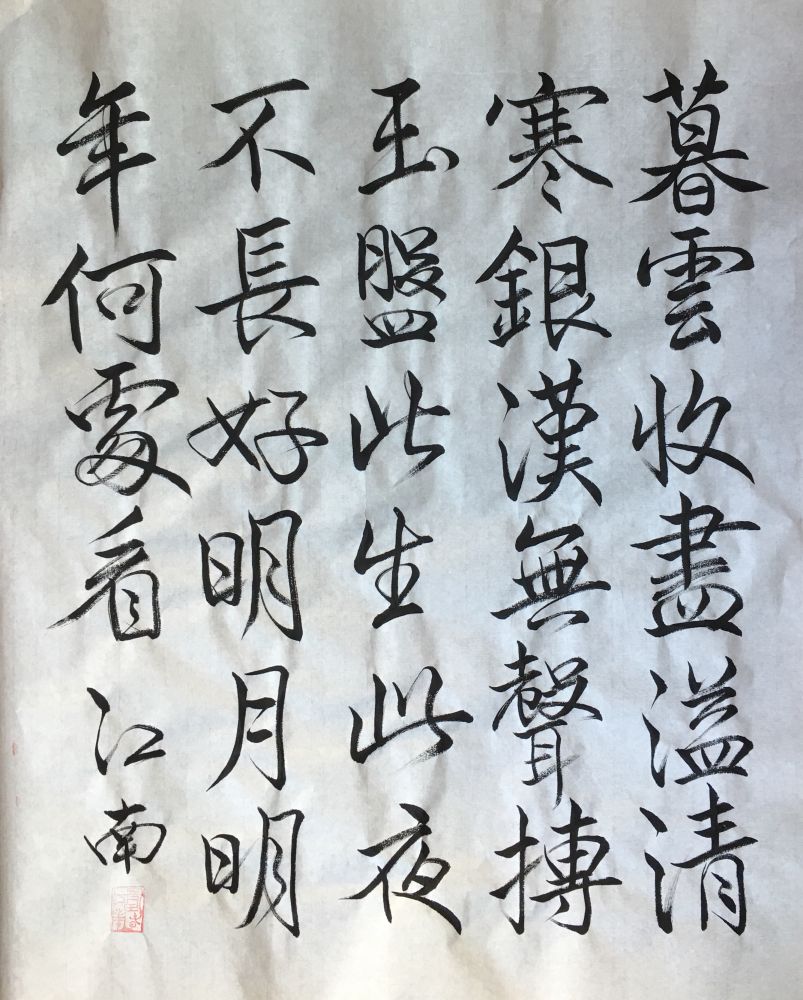 暮雲收盡溢清
寒銀漢無聲轉
玉盤此生此夜
不長好明月明
年何處看 江南